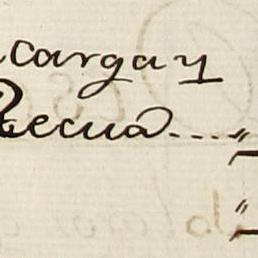 acargay
Recua....."
"